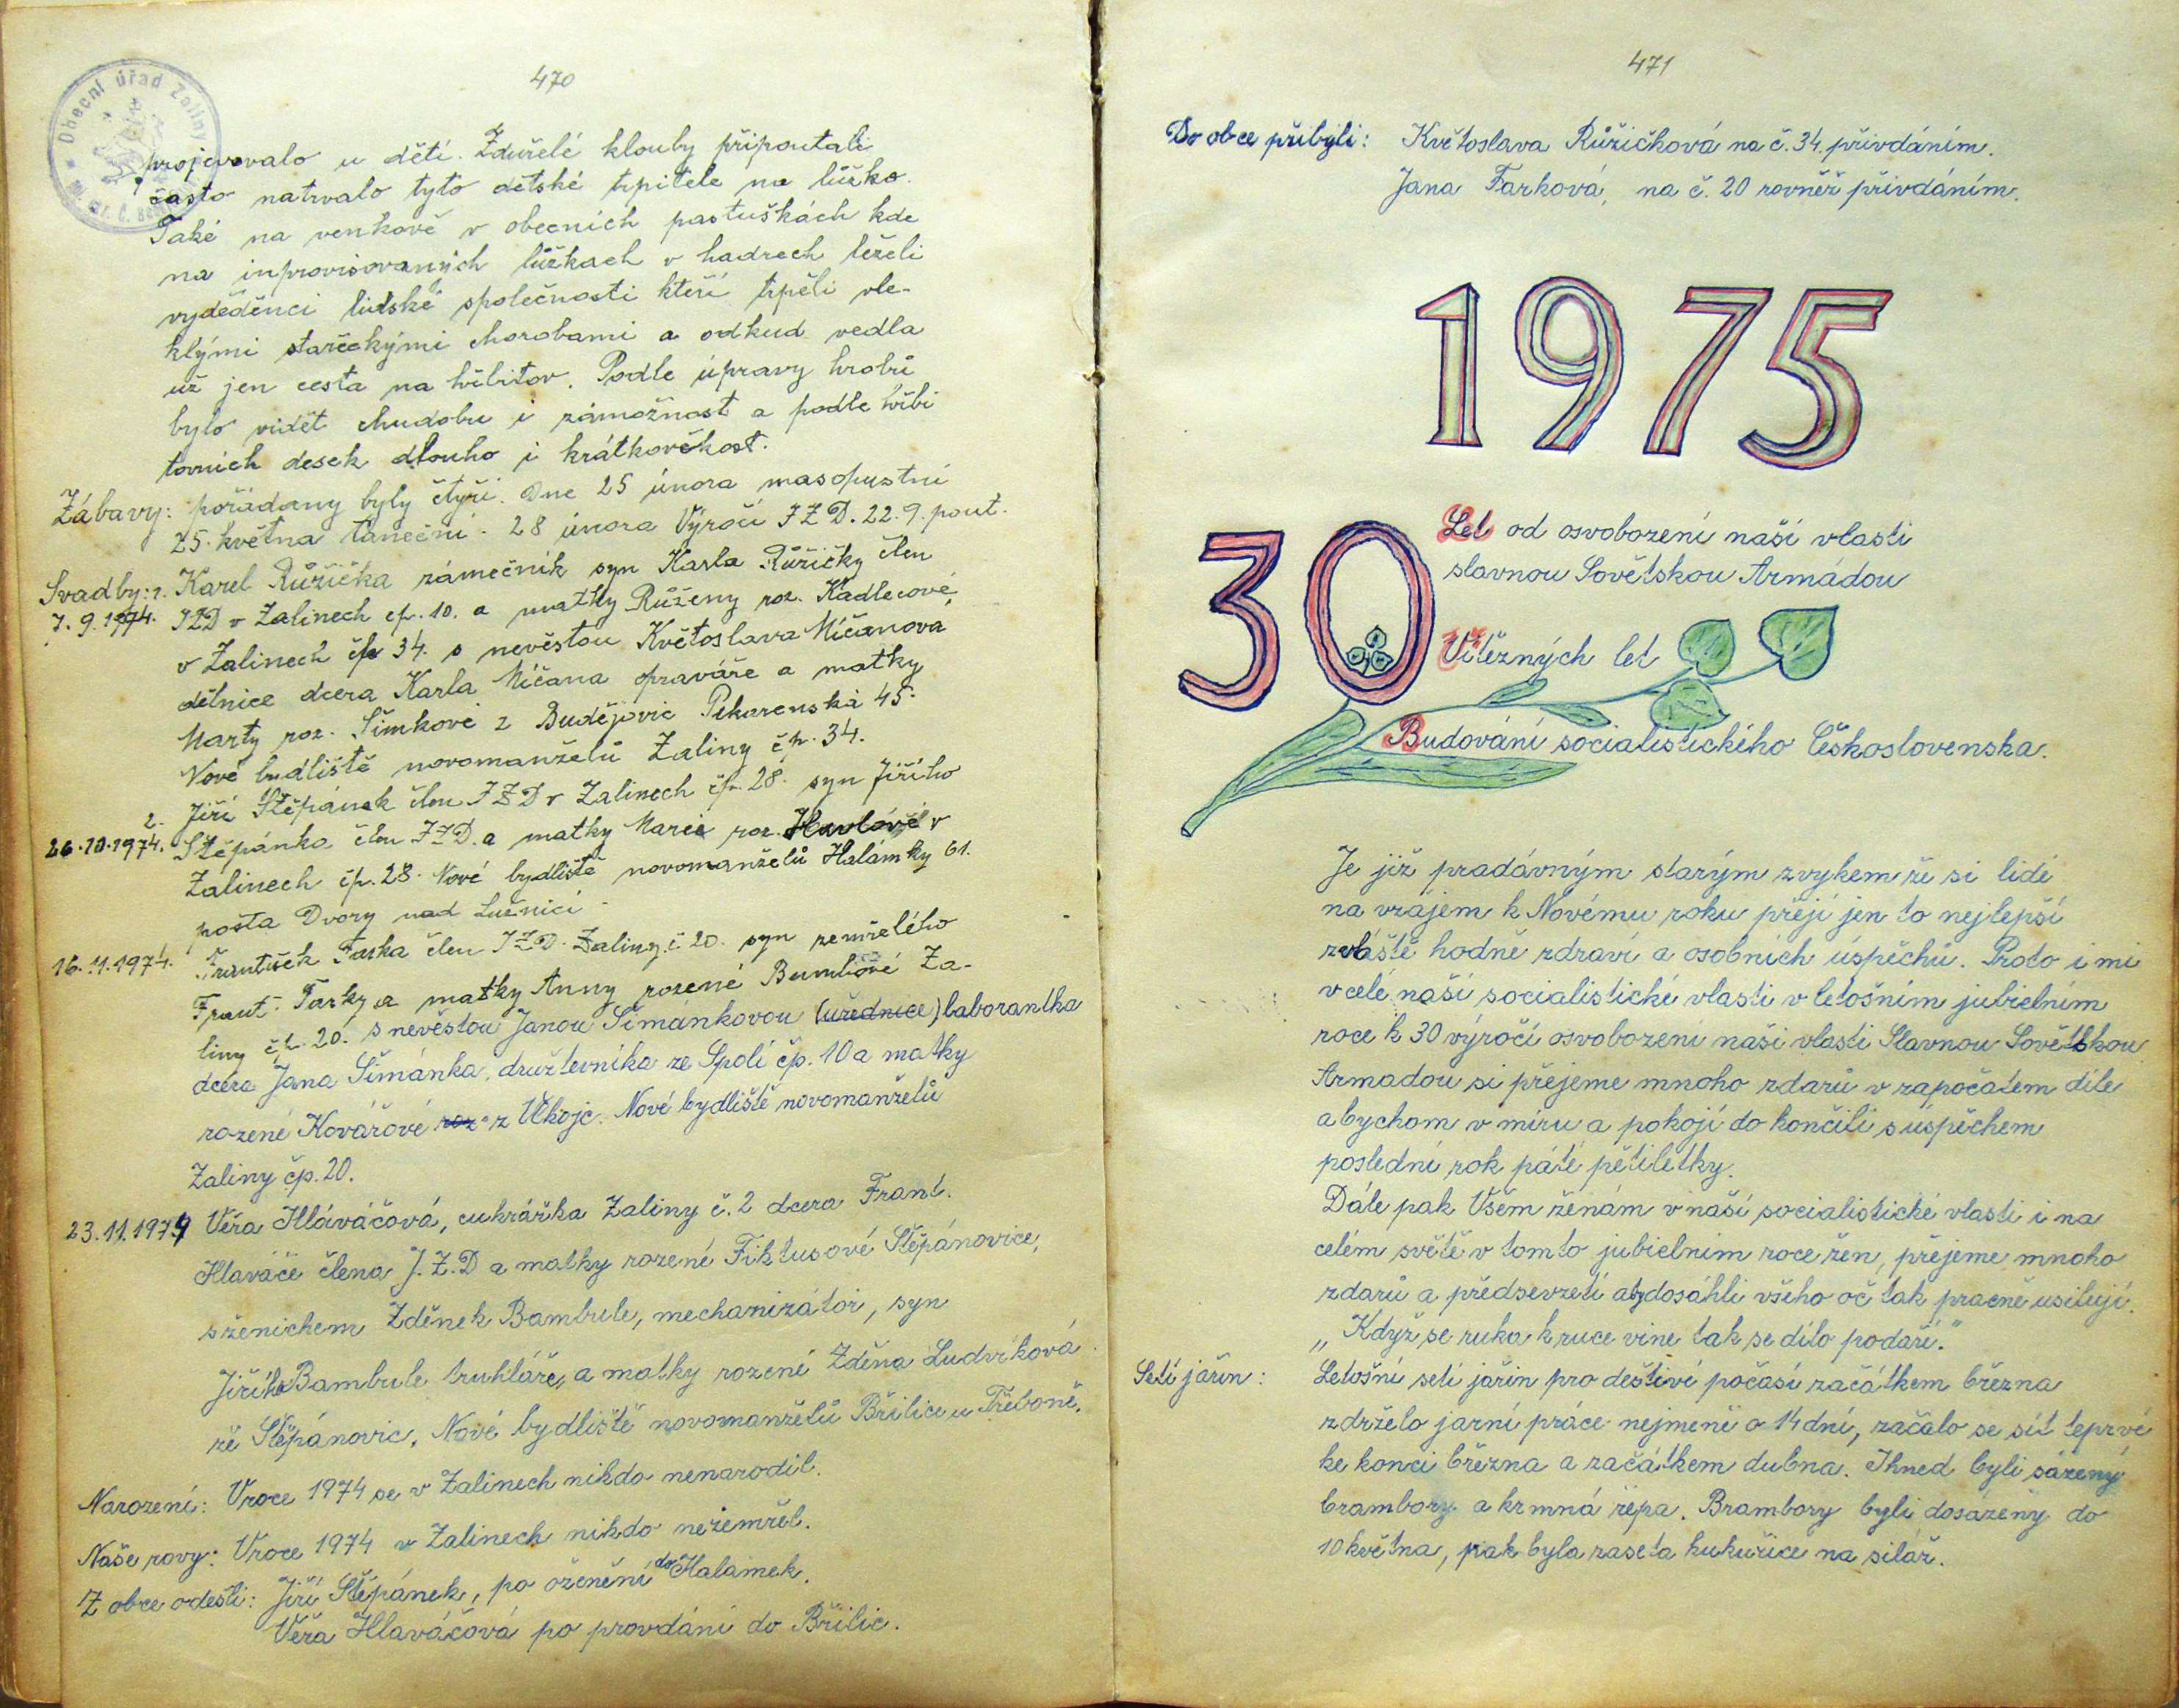 470
Obecní úřad Zaliny
projevovalo u dětí. Zduřelé klouby připoutali
často natrvalo tyto dětské trpitele na lůžko.
Také na venkově v obecních pastuškách kde
na inprovisovaných lůžkach v hadrech leželi
vyděděnci lidské společnosti kteří trpěli vle-
klými stařeckými chorobami a odkud vedla
už jen cesta na hřbitov. Podle úpravy hrobů
bylo vidět chudobu i zámožnost a podle hřbi
tovních desek dlouho i krátkověkost.
Zábavy: pořádany byly čtyři. Dne 25 února masopustní
25. května taneční. 28 února Výročí JZD. 22.9. pout.
Svadby: 1. Karel Růžička zámečník syn Karla Růžičky člen
7.9.1974. JZD v Zalinech čp. 10. a matky Růženy roz. Kadlecové,
v Zalinech čp 34. s nevěstou Květoslava Mičanova
dělnice dcera Karla Mičana opraváře a matky
Marty roz. Šimkové z Budějovic Pekarenská 45.
Nové bydliště novomanželů Zaliny čp. 34.
2. Jiří Štěpánek člen JZD v Zalinech čp. 28. syn Jiřího
26.10.1974. Štěpánka člen JZD. a matky Marie roz. Havlové v
Zalinech čp. 28. Nové bydliště novomanželů Halámky 61.
pošta Dvory nad Lužnicí
16.11.1974. František Farka člen JZD. Zaliny č 20. syn zemřelého
Frant. Farky a matky Anny rozené Bumbové Za-
liny čp. 20. s nevěstou Janou Šimánkovou (uřednice) laborantka
dcera Jana Šimánka, družtevníka ze Spolí čp. 10 a matky
rozené Kovářové roz. z Vlkojc. Nové bydliště novomanželů
Zaliny čp. 20.
23.11.1974 Věra Hláváčová, cukrářka Zaliny č. 2 dcera Frant.
Hlaváče člena J.Z.D a matky rozené Fiktusové Štěpánovice,
s ženichem Zděnek Bambule, mechanizátor, syn
Jiřího Bambule truhláře, a matky rozené Zděna Ludvíková
ze Štěpánovic. Nové bydliště novomanželů Břilice u Třeboně.
Narození: V roce 1974 se v Zalinech nikdo nenarodil.
Naše rovy: V roce 1974 v Zalinech nikdo nezemřel.
Z obce odešli: Jiří Štěpánek, po oženění do Halamek.
Věra Hlaváčová po provdání do Břilic.
471
Do obce přibyli: Květoslava Růžičková na č. 34. přivdáním.
Jana Farková, na č. 20 rovněž přivdáním.
1975
30 Let od osvobození naší vlasti
slavnou Sovětskou Armádou
Vítězných let
Budování socialistického Československa.
Je již pradávným starým zvykem že si lidé
na vzájem k Novému roku přejí jen to nejlepší
zvláště hodně zdraví a osobních úspěchů. Proto i mi
v celé naší socialistické vlasti v letošním jubielním
roce k 30 výročí osvobození naši vlasti Slavnou Sovětskou
Armadou si přejeme mnoho zdarů v započatem díle
abychom v míru a pokojí do končili s úspěchem
poslední rok páté pětiletky.
Dále pak Všem ženám v naší socialistické vlasti i na
celém světě v tomto jubielním roce žen, přejeme mnoho
zdarů a předsevzetí aby dosáhli všeho oč tak pracně usilují.
„Když se ruka k ruce vine tak se dílo podaří."
Setí jařin: Letošní setí jařin pro deštivé počasí začátkem března
zdrželo jarní práce nejmeně o 14 dní, začalo se sít teprvé
ke konci března a začátkem dubna. Ihned byli sázený
brambory a krmná řepa. Brambory byli dosázeny do
10 května, pak byla zaseta kukuřice na siláž.